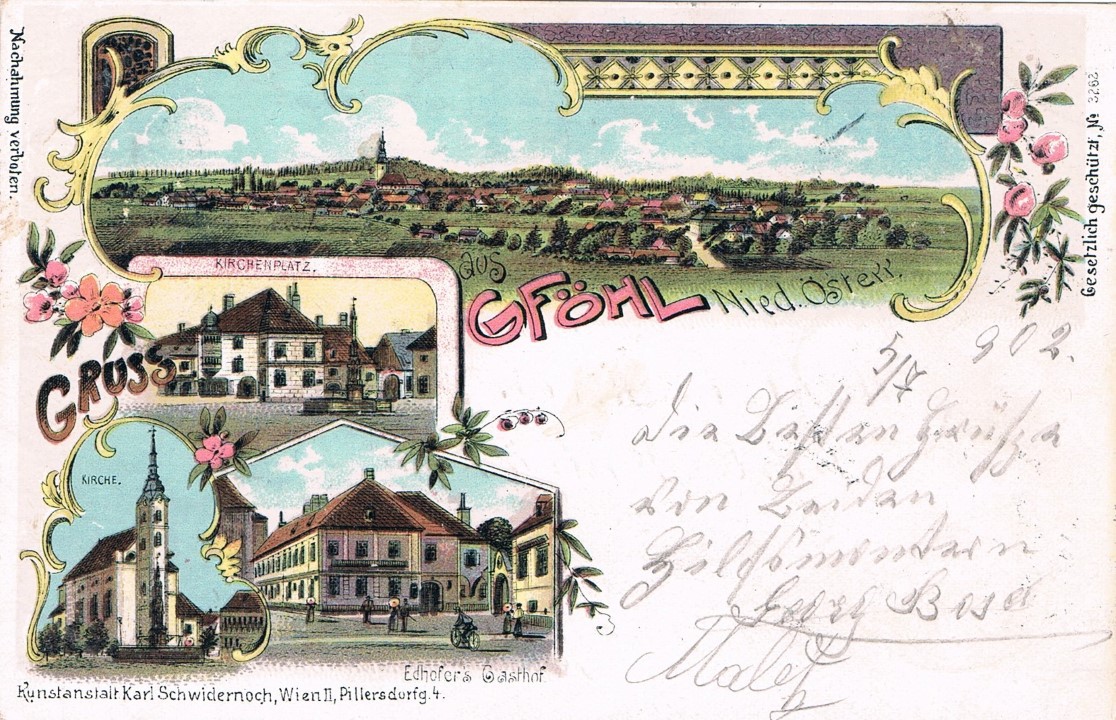 Nachahmung verboten.
Gesetzlich geschützt, № 3263
KIRCHENPLATZ.
GRUSS
aus
GFÖHL
Nied. Österr.
KIRCHE.
Edhofer's Gasthof.
Kunstanstalt Karl Schwidernoch, Wien II, Pillersdorfg. 4.
5/7 902.
Die Besten Grüße
von Beiden
Georg